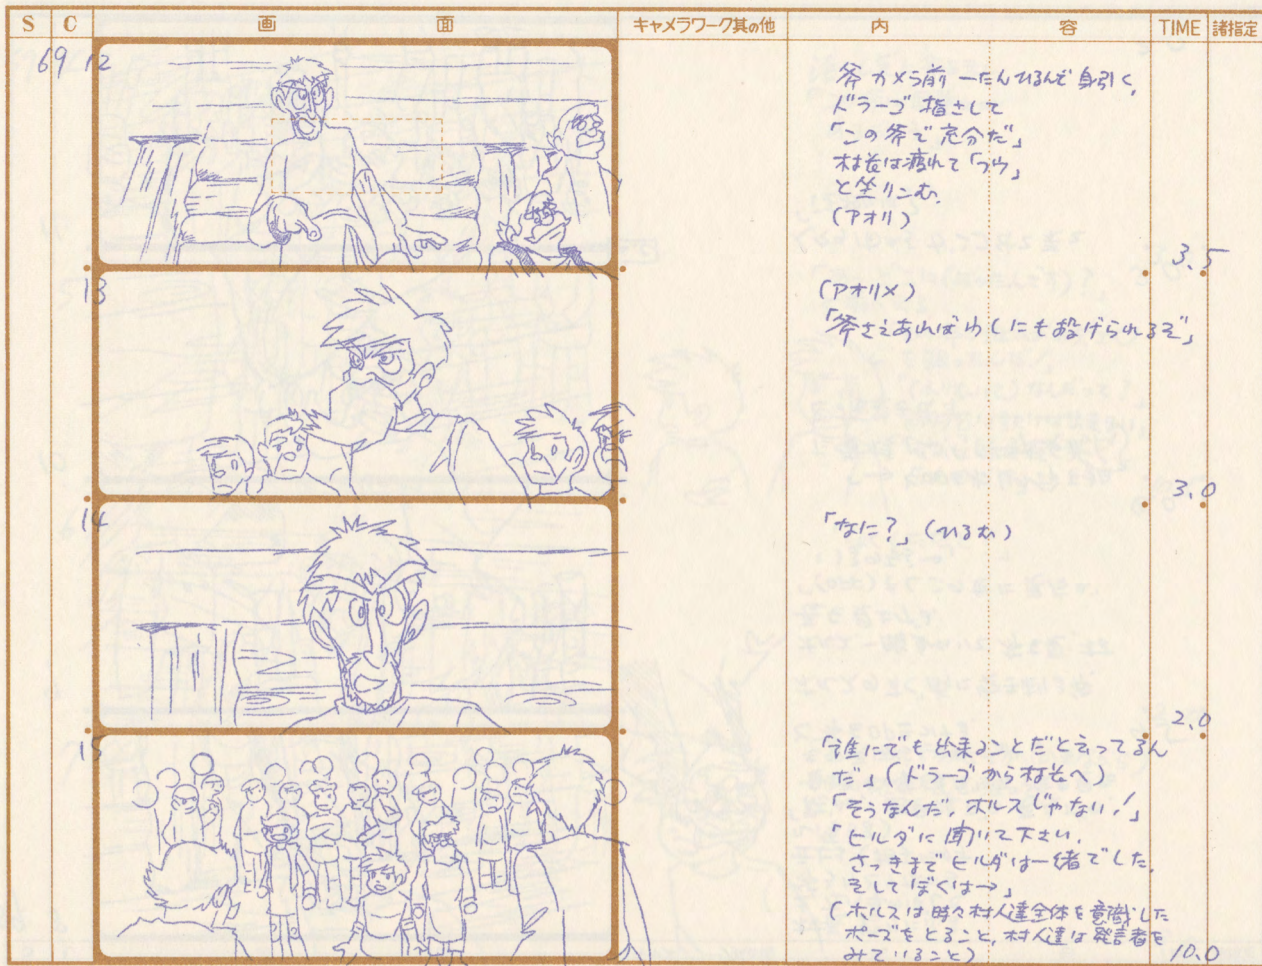 S C 画面 キャメラワーク其の他 内容 TIME 諸指定
69 12
斧カメラ前 一たんひるんで身引く、
ドラーゴ 指さして
「この斧で充分だ」
村長は疲れて「フウ」
と坐りこむ。
(アオリ)
3.5
13
(アオリメ)
「斧さえあればわしにも投げられるぞ」
3.0
14
「なに?」(ひるむ)
2.0
15
「誰にでも出来ることだと云ってるん
だ」(ドラーゴから村長へ)
「そうなんだ、ホルスじゃない!」
ヒルダに聞いて下さい、
さっきまでヒルダは一緒でした。
そしてぼくは→」
(ホルスは時々村人達全体を意識した
ポーズをとること、村人達は発言者を
みていること)
10.0